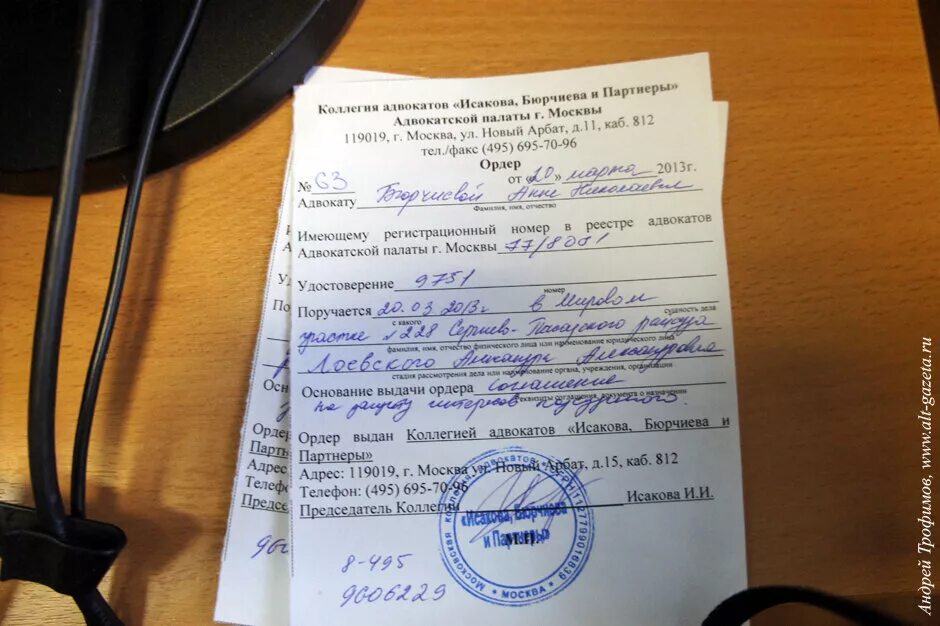 Коллегия адвокатов «Исакова, Бюрчиева и Партнеры»
Адвокатской палаты г. Москвы
119019, г. Москва, ул. Новый Арбат, д.11, каб. 812
тел./факс (495) 695-70-96
Ордер
№ 63 от «20» марта 2013г.
Адвокату Бюрчиевой Анне Николаевне
Фамилия, имя, отчество
Имеющему регистрационный номер в реестре адвокатов
Адвокатской палаты г. Москвы 77/8001
Удостоверение 9751
номер
Поручается 20.03.2013г. в Мировом
с какого сущность дела
участке №228 Сергиево-Посадского района
фамилия, имя, отчество физического лица или наименование юридического лица
Лоевского Александра Александровича
стадия рассмотрения дела или наименование органа, учреждения, организации
Основание выдачи ордера соглашение
реквизиты соглашения, документа о назначении
на защиту интересов подсудимого.
Ордер выдан Коллегией адвокатов «Исакова, Бюрчиева и
Партнеры»
Адрес: 119019, г. Москва ул. Новый Арбат, д.15, каб. 812
Телефон: (495) 695-70-96
Председатель Коллегии Исакова И.И.
Московская коллегия адвокатов
«Исакова, Бюрчиева
и Партнеры»
МОСКВА
8-495
9606229
Андрей Трофимов, www.alt-gazeta.ru